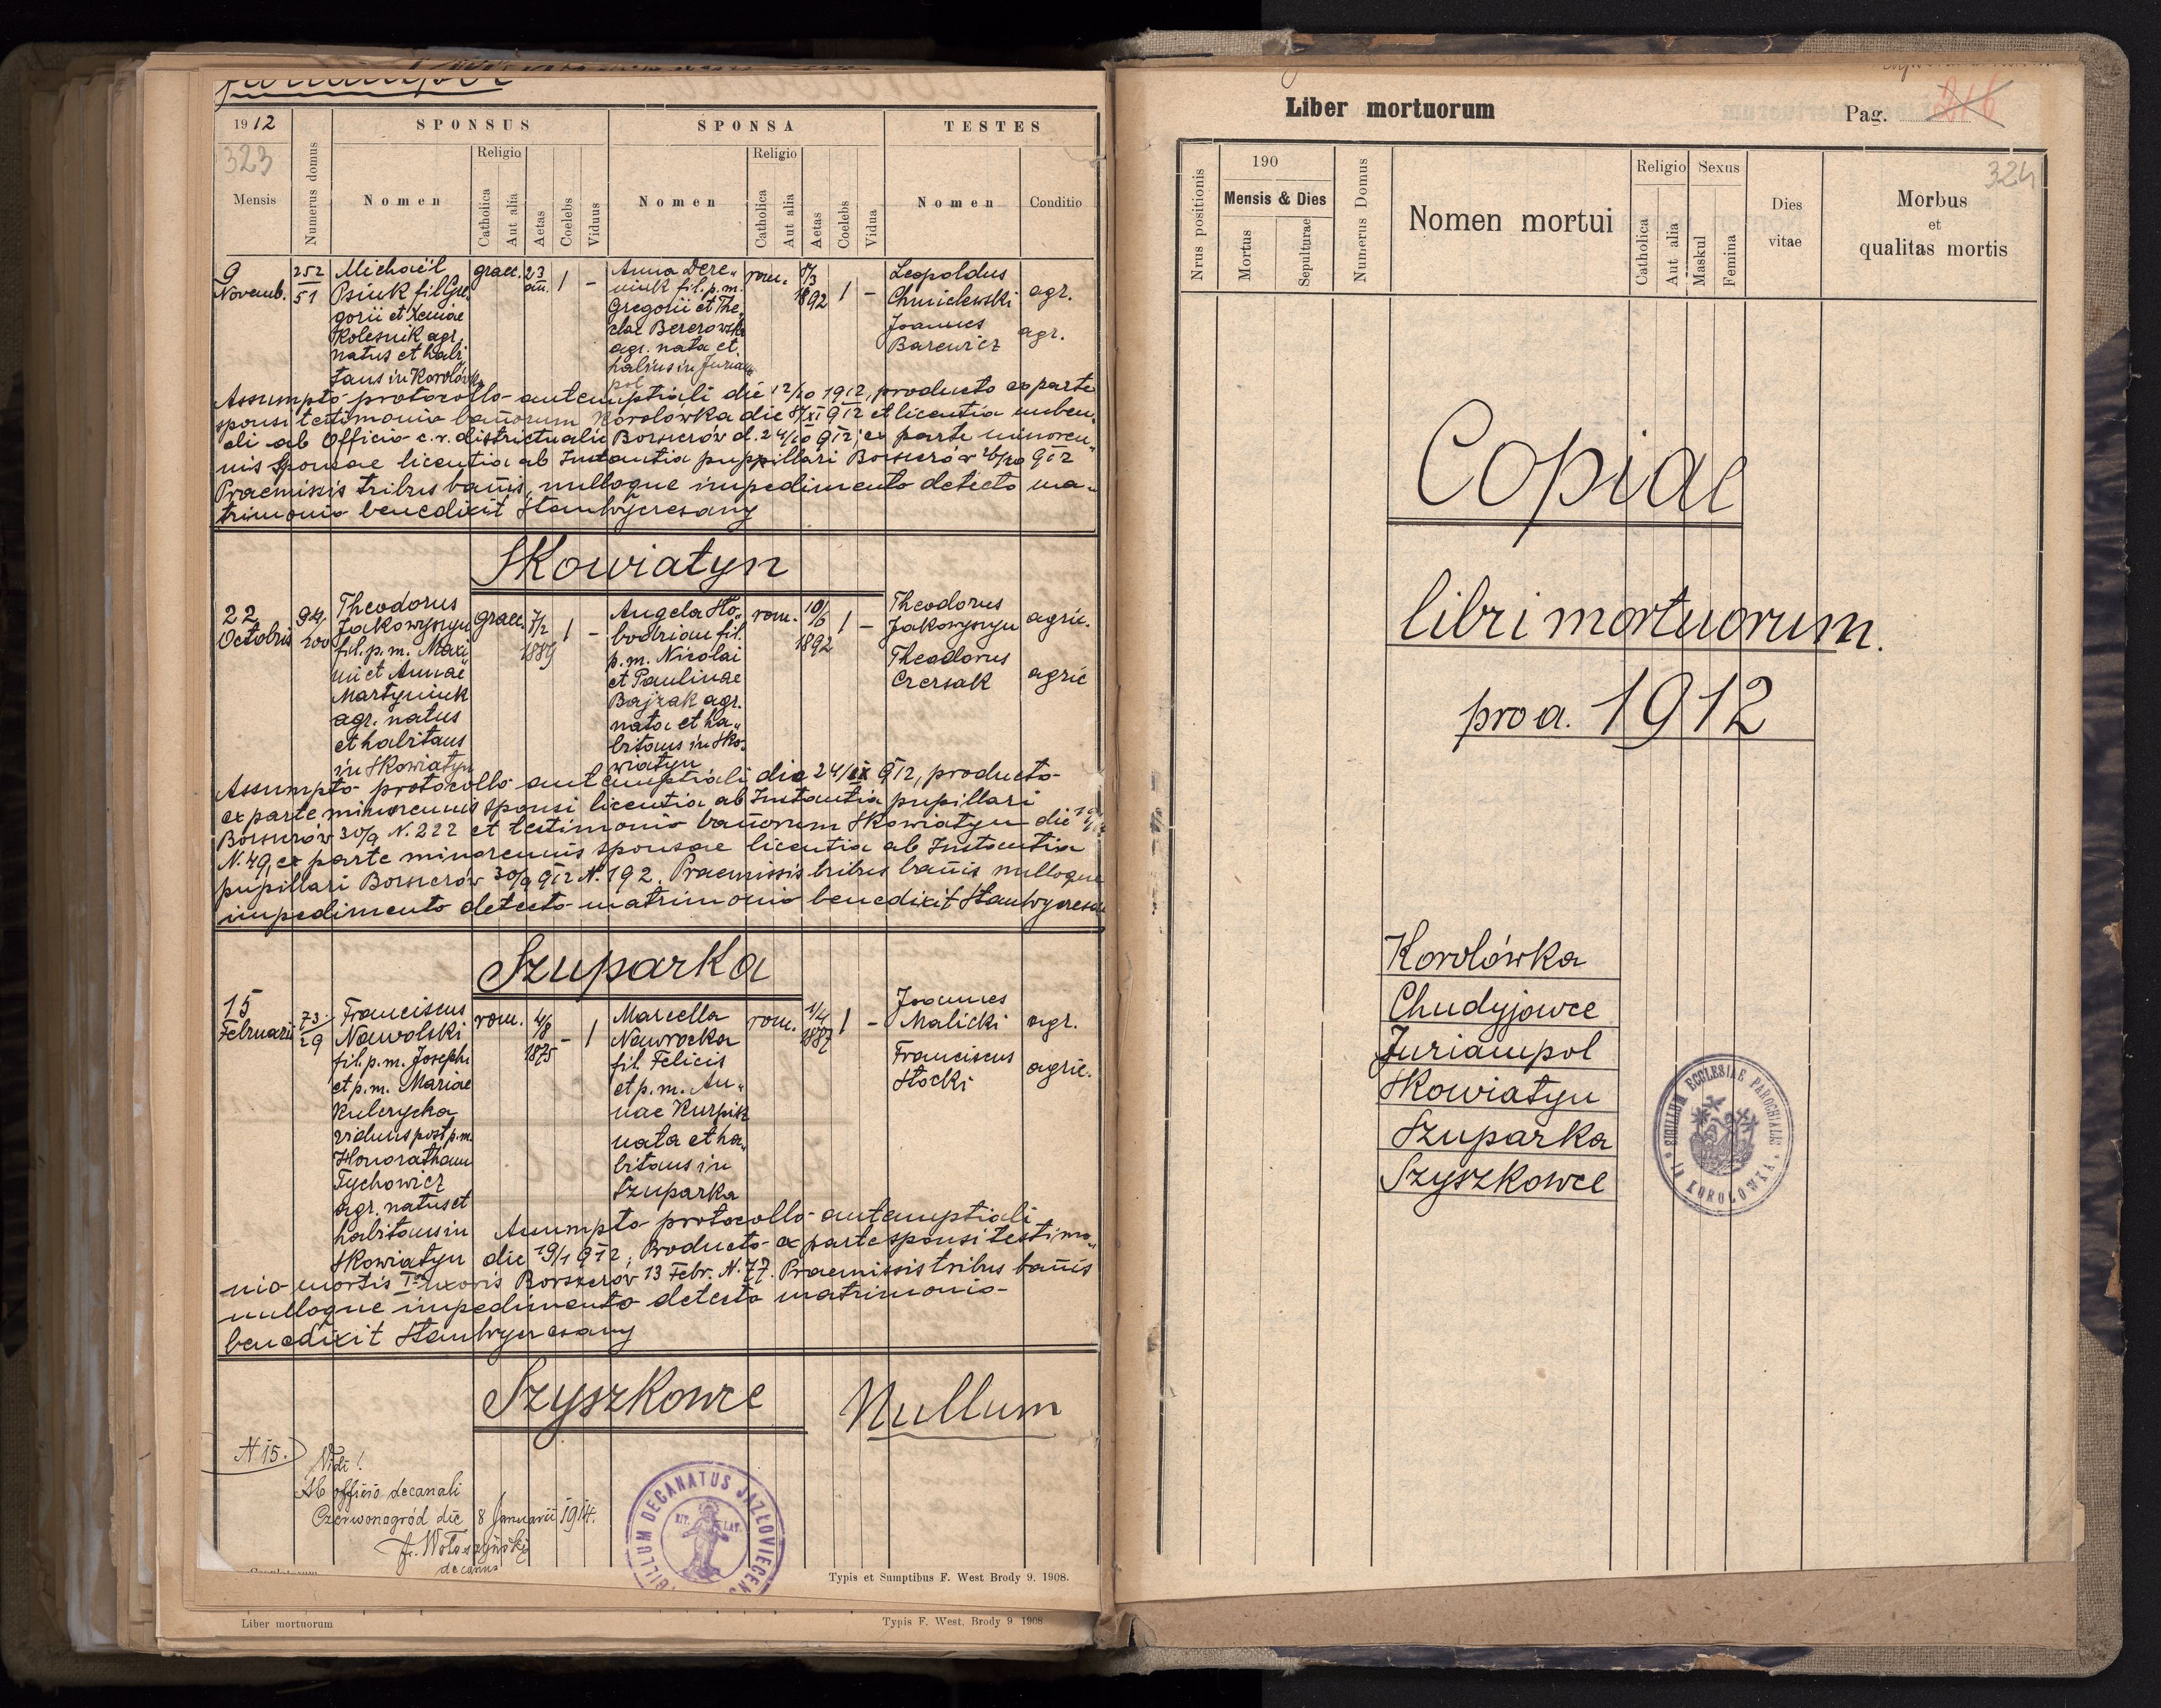 1912
SPONSUS
SPONSA
TESTES
323
Mensis
Numerus domus
Nomen
Religio
Catholica
Aut alia
Aetas
Coelebs
Viduus
Nomen
Religio
Catholica
Aut alia
Aetas
Coelebs
Vidua
Nomen
Conditio
9
Novemb.
252
51
Michaël
Psiuk fil. Gre„
gorii et Xeniae
Kolesnik agr.
natus et habi„
tans in Korolówka
graec.
23
an.
1
–
Anna Dere„
niuk fil. p.m.
Gregorii et The„
clae Bererowska
agr. nata et
habitans in Juriam„
pol
rom.
8/3
1892
1
–
Leopoldus
Chmielewski
agr.
Joannes
Barewicz
agr.
Assumpto protocollo antenuptiali die 12/10 1912, producto ex parte
sponsi testimonio bannorum Korolówka die 8/XI 912 et licentia nuben„
di ab Officio c.r. districtuali Borszczów d. 24/10 912; ex parte minoren„
nis Sponsae licentia ab Instantia puppillari Borszczów 26/10 912
Praemissis tribus bannis, nulloque impedimento detecto ma„
trimonio benedixit StanWyczesany
Skowiatyn
22
Octobris
94
200
Theodorus
Jakowyszyn
fil. p.m. Maxi
mi et Annae
Martyniuk
agr. natus
et habitans
in Skowiatyn
graec.
7/2
1889
1
–
Angela Ho„
bodrian fil.
p.m. Nicolai
et Paulinae
Bajzak agr.
nata et ha„
bitans in Sko„
wiatyn
rom.
10/6
1892
1
–
Theodorus
Jakowyszyn
agric.
Theodorus
Czersak
agric
Assumpto protocollo antenuptiali die 24/IX 912, producto
ex parte minorennis Sponsi licentia ab Instantia pupillari
Borszczów 30/9 N. 222 et testimonio bannorum Skowiatyn die
N. 49, ex parte minorennis sponsae licentia ab Instantia
pupillari Borszczów 30/9 912 N. 192. Praemissis tribus bannis nulloque
impedimento detecto matrimonio benedixit StanWyczesany
Szuparka
15
Februarii
73
29
Franciscus
Nawolski
fil. p.m. Josephi
et p.m. Mariae
Kulczycka
viduus post p.m.
Honoratham
Tychowicz
agr. natus et
habitans in
Skowiatyn
rom.
4/8
1875
–
1
Marcella
Nawrocka
fil. Felicis
et p.m. An„
nae Kurpik
nata et ha„
bitans in
Szuparka
rom.
1/4
1887
1
–
Joannes
Malicki
agr.
Franciscus
Stocki
agric.
Assumpto protocollo antenuptiali
die 19/1 912, Producto ex parte sponsi testimo„
nio mortis I uxoris Borszczów 13 Febr. N. 77. Praemissis tribus bannis
nulloque impedimento detecto matrimonio
benedixit StanWyczesany
Szyszkowce
Nullum
N 15.
Vidi!
Ab officio decanali
Czerwonogród die 8 Januarii 1914.
Fr. Wołoszyński
decanus
SIGILLUM DECANATUS JAZŁOVIECENS
RIT. LAT.
Typis et Sumptibus F. West Brody 9. 1908.
Liber mortuorum
Typis F. West. Brody 9 1908
Liber mortuorum
Pag. 216
324
Nrus positionis
190
Mensis & Dies
Mortus
Sepulturae
Numerus Domus
Nomen mortui
Religio
Catholica
Aut alia
Sexus
Maskul
Femina
Dies
vitae
Morbus
et
qualitas mortis
Copiae
libri mortuorum.
pro a. 1912
Korolówka
Chudyjowce
Juriampol
Skowiatyn
Szuparka
Szyszkowce
SIGILLUM ECCLESIAE PAROCHIALIS
IN KOROLOWKA